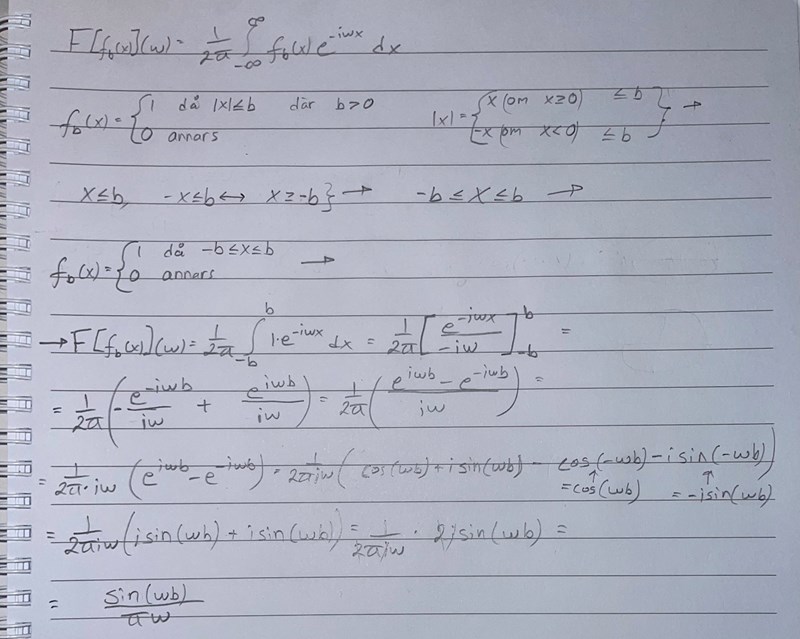 F[f_b(x)](ω) = 1/2π ∫_{-∞}^{∞} f_b(x) e^{-iωx} dx
f_b(x) = { 1 då |x| ≤ b där b > 0 ; 0 annars |x| = { x (om x ≥ 0) ≤ b ; -x (om x < 0) ≤ b } →
x ≤ b, -x ≤ b ↔ x ≥ -b } → -b ≤ x ≤ b →
f_b(x) = { 1 då -b ≤ x ≤ b ; 0 annars →
→ F[f_b(x)](ω) = 1/2π ∫_{-b}^{b} 1·e^{-iωx} dx = 1/2π [ e^{-iωx}/-iω ]_{-b}^{b} =
= 1/2π ( -e^{-iωb}/iω + e^{iωb}/iω ) = 1/2π ( (e^{iωb} - e^{-iωb})/iω ) =
= 1/2π·iω ( e^{iωb} - e^{-iωb} ) = 1/2πiω ( cos(ωb) + i sin(ωb) - cos(-ωb) - i sin(-ωb) )
↑ ↑
= cos(ωb) = -i sin(ωb)
= 1/2πiω ( i sin(ωb) + i sin(ωb) ) = 1/2πiω · 2i sin(ωb) =
= sin(ωb)/πω